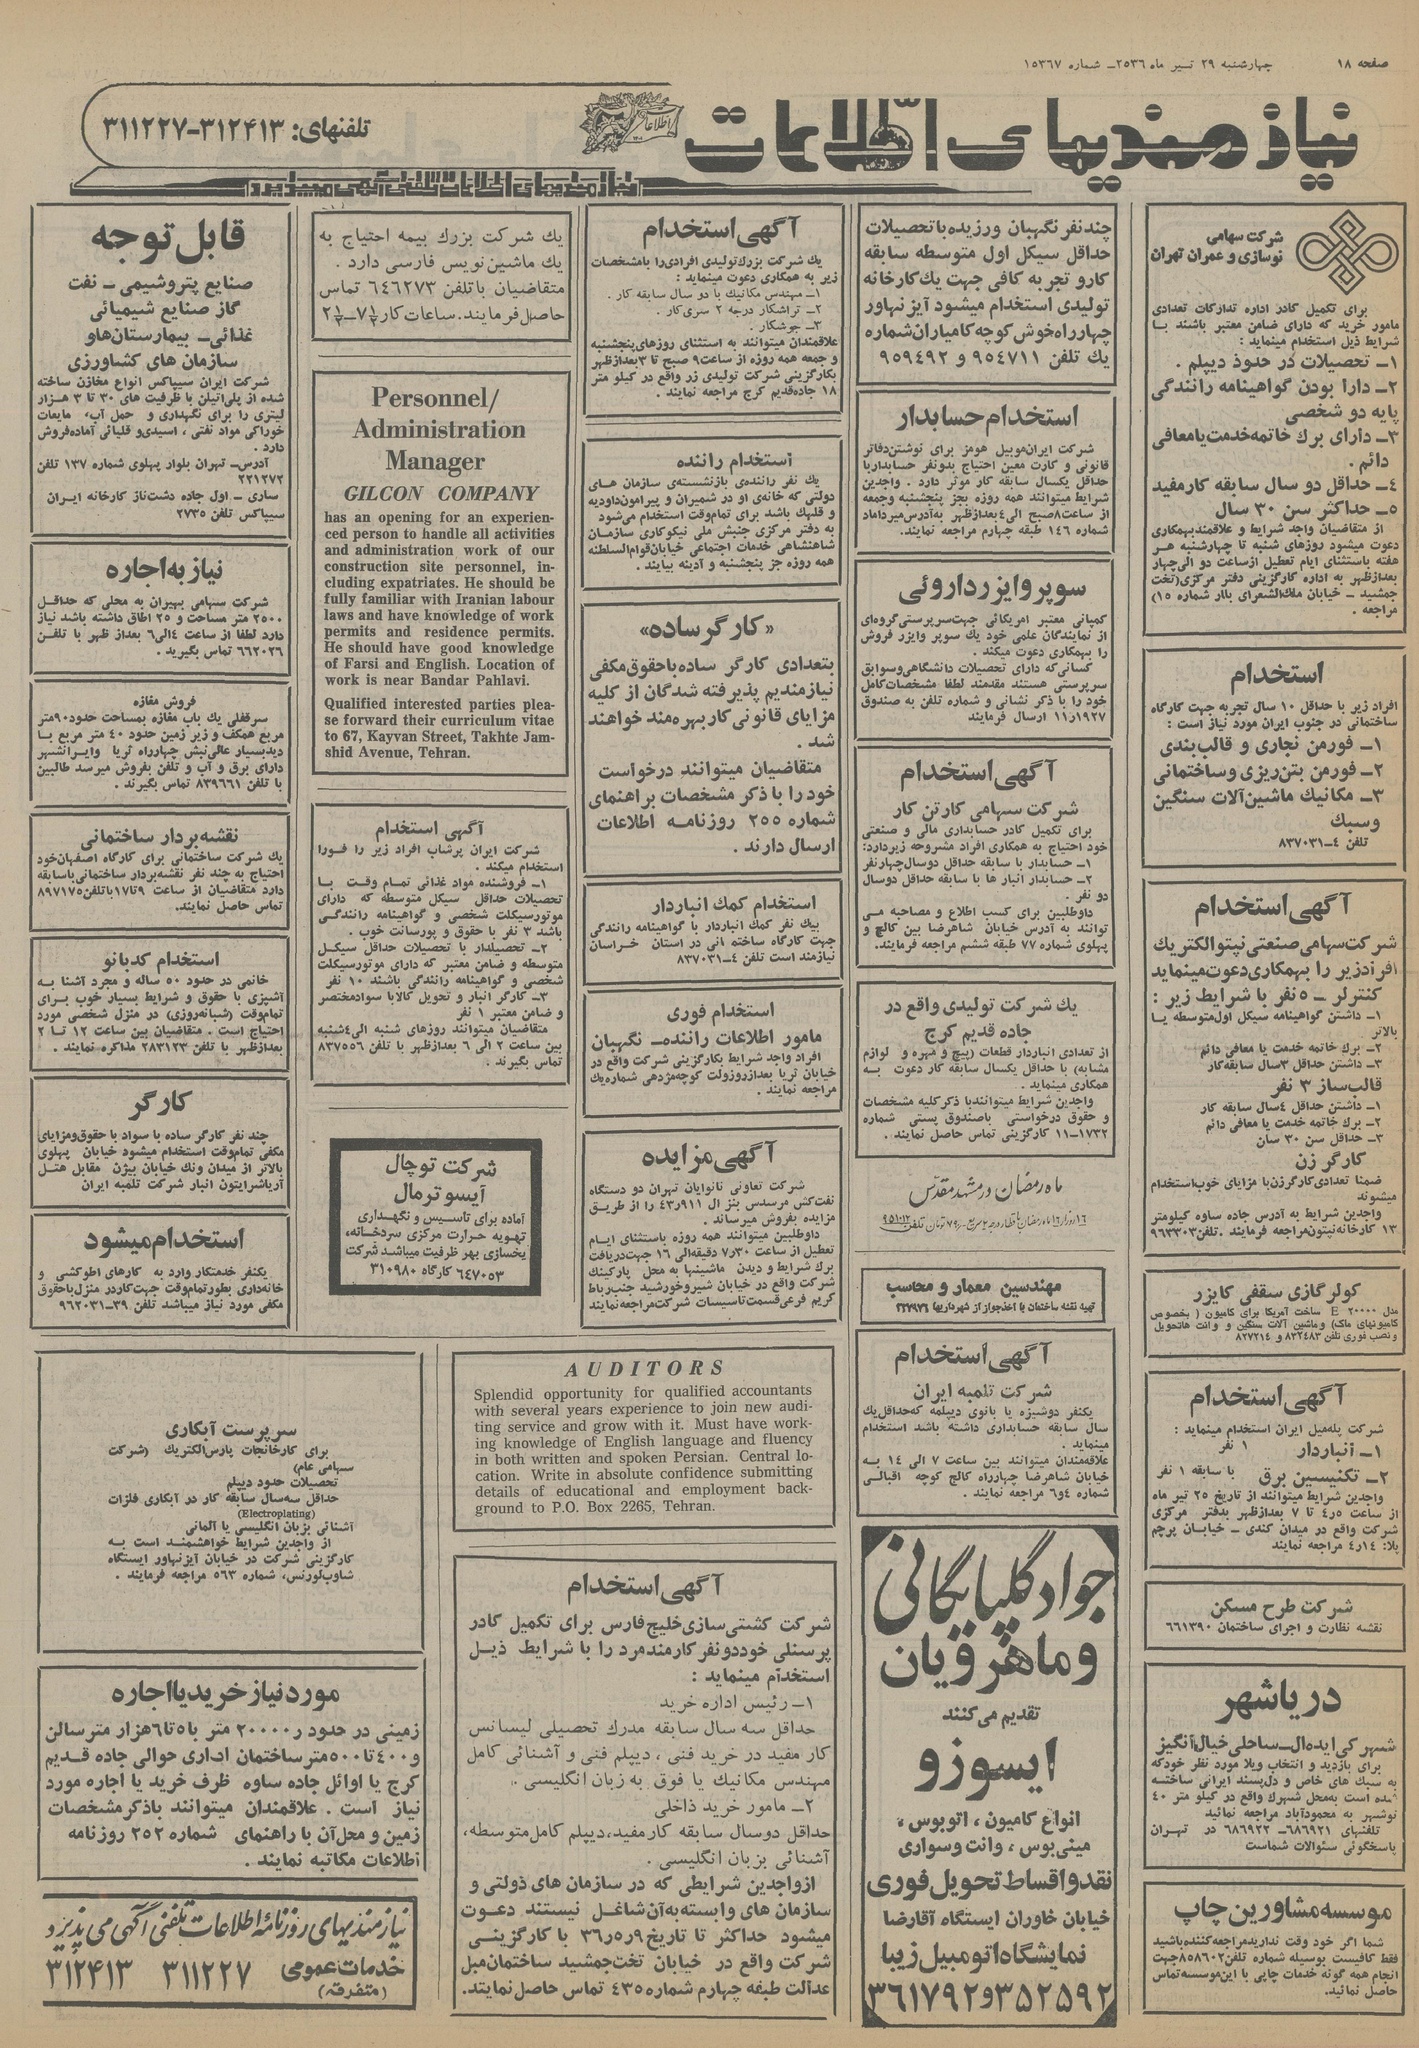 صفحه ۱۸
چهارشنبه ۲۹ تیر ماه ۲۵۳۶ـ شماره ۱۵۳۶۷
نیازمندیهای اطلاعات
تلفنهای: ۳۱۲۴۱۳-۳۱۱۲۲۷
نیازمندیهای اطلاعات تلفنی آگهی میپذیرد
شرکت سهامی
نوسازی و عمران تهران
برای تکمیل کادر اداره تدارکات تعدادی
مامور خرید که دارای ضامن معتبر باشند با
شرایط ذیل استخدام مینماید :
۱ـ تحصیلات در حدود دیپلم .
۲ـ دارا بودن گواهینامه رانندگی
پایه دو شخصی
۳ـ دارای برك خاتمه خدمت یا معافی
دائم .
۴ـ حداقل دو سال سابقه کار مفید
۵ـ حداکثر سن ۳۰ سال
از متقاضیان واجد شرایط و علاقمند بهمکاری
دعوت میشود روزهای شنبه تا چهارشنبه هر
هفته باستثنای ایام تعطیل از ساعت دو الی چهار
بعدازظهر به اداره کارگزینی دفتر مرکزی (تخت
جمشید ـ خیابان ملك الشعرای بلار شماره ۱۵)
مراجعه .
استخدام
افراد زیر با حداقل ۱۰ سال تجربه جهت کارگاه
ساختمانی در جنوب ایران مورد نیاز است :
۱ـ فورمن نجاری و قالب بندی
۲ـ فورمن بتن ریزی و ساختمانی
۳ـ مکانیك ماشین آلات سنگین
و سبك
تلفن ۴ـ۸۳۷۰۳۱
آگهی استخدام
شرکت سهامی صنعتی نپتو الکتریك
افراد زیر را بهمکاری دعوت مینماید
کنترلر ـ ۵ نفر با شرایط زیر :
۱ـ داشتن گواهینامه سیکل اول متوسطه یا
بالاتر
۲ـ برك خاتمه خدمت یا معافی دائم
۳ـ داشتن حداقل ۳ سال سابقه کار
قالب ساز ۳ نفر
۱ـ داشتن حداقل ۴ سال سابقه کار
۲ـ برك خاتمه خدمت یا معافی دائم
۳ـ حداقل سن ۳۰ سال
کارگر زن
ضمنا تعدادی کارگر زن با مزایای خوب استخدام
میشوند
واجدین شرایط به آدرس جاده ساوه کیلومتر
۱۳ کارخانه نیتون مراجعه فرمایند . تلفن ۹۶۳۳۰۳
کولر گازی سقفی کایزر
مدل ۲۰۰۰۰ E ساخت آمریکا برای کامیون ( بخصوص
کامیونهای ماك) و ماشین آلات سنگین و وانت ها تحویل
و نصب فوری تلفن ۸۳۲۴۸۳ و ۸۲۷۲۱۴
آگهی استخدام
شرکت پله میل ایران استخدام مینماید :
۱ـ انباردار ۱ نفر
۲ـ تکنیسین برق با سابقه ۱ نفر
واجدین شرایط میتوانند از تاریخ ۲۵ تیر ماه
از ساعت ۵ر۴ تا ۷ بعدازظهر بدفتر مرکزی
شرکت واقع در میدان کندی ـ خیابان پرچم
پلا: ۱۴ر۴ مراجعه نمایند
شرکت طرح مسکن
نقشه نظارت و اجرای ساختمان ۶۶۱۳۹۰
دریاشهر
شهرکی ایده ال ـ ساحلی خیال انگیز
برای بازدید و انتخاب ویلا مورد نظر خود که
به سبك های خاص و دل پسند ایرانی ساخته
شده است به محل شهرك واقع در کیلو متر ۴۰
نوشهر به محمودآباد مراجعه نمائید
تلفنهای ۶۸۶۹۲۱ـ ۶۸۶۹۲۲ در تهران
پاسخگوئی سئوالات شماست
موسسه مشاورین چاپ
شما اگر خود وقت ندارید مراجعه کننده باشید
فقط کافیست بوسیله شماره تلفن ۸۵۸۶۰۲ جهت
انجام همه گونه خدمات چاپی با این موسسه تماس
حاصل نمائید.
چند نفر نگهبان ورزیده با تحصیلات
حداقل سیکل اول متوسطه سابقه
کار و تجربه کافی جهت یك کارخانه
تولیدی استخدام میشود آیزنهاور
چهارراه خوش کوچه کامیاران شماره
یك تلفن ۹۵۴۷۱۱ و ۹۵۹۴۹۲
استخدام حسابدار
شرکت ایران موبیل هومز برای نوشتن دفاتر
قانونی و کارت معین احتیاج بدو نفر حسابدار با
حداقل یکسال سابقه کار موثر دارد . واجدین
شرایط میتوانند همه روزه بجز پنجشنبه و جمعه
از ساعت ۸ صبح الی ۴ بعدازظهر به آدرس میرداماد
شماره ۱۴۶ طبقه چهارم مراجعه نمایند.
سوپر وایزر داروئی
کمپانی معتبر امریکائی جهت سرپرستی گروه ای
از نمایندگان علمی خود یك سوپر وایزر فروش
را بهمکاری دعوت میکند .
کسانی که دارای تحصیلات دانشگاهی و سوابق
سرپرستی هستند مقدمند لطفا مشخصات کامل
خود را با ذکر نشانی و شماره تلفن به صندوق
۱۱ر۱۹۲۷ ارسال فرمایند
آگهی استخدام
شرکت سهامی کارتن کار
برای تکمیل کادر حسابداری مالی و صنعتی
خود احتیاج به همکاری افراد مشروحه زیر دارد:
۱ـ حسابدار با سابقه حداقل دو سال چهار نفر
۲ـ حسابدار انبار ها با سابقه حداقل دو سال
دو نفر .
داوطلبین برای کسب اطلاع و مصاحبه می
توانند به آدرس خیابان شاهرضا بین کالج و
پهلوی شماره ۷۷ طبقه ششم مراجعه فرمایند.
یك شرکت تولیدی واقع در
جاده قدیم کرج
از تعدادی انباردار قطعات (پیچ و مهره و لوازم
مشابه) با حداقل یکسال سابقه کار دعوت به
همکاری مینماید .
واجدین شرایط میتوانند با ذکر کلیه مشخصات
و حقوق درخواستی با صندوق پستی شماره
۱۷۳۲ـ۱۱ کارگزینی تماس حاصل نمایند .
ماه رمضان در مشهد مقدس
مهندسین معمار و محاسب
تهیه نقشه ساختمان با اخذ جواز از شهرداریها ۲۲۲۹۷۶
آگهی استخدام
شرکت تلمبه ایران
یکنفر دوشیزه یا بانوی دیپلمه که حداقل یك
سال سابقه حسابداری داشته باشد استخدام
مینماید .
علاقه مندان میتوانند بین ساعت ۷ الی ۱۴ به
خیابان شاهرضا چهارراه کالج کوچه اقبالی
شماره ۴و۶ مراجعه نمایند .
جواد گلپایگانی
و ماهرویان
تقدیم می کنند
ایسوزو
انواع کامیون ، اتوبوس ،
مینی بوس ، وانت و سواری
نقد و اقساط تحویل فوری
خیابان خاوران ایستگاه آقارضا
نمایشگاه اتومبیل زیبا
۳۵۲۵۹۲ و ۳۶۱۷۹۲
آگهی استخدام
یك شرکت بزرك تولیدی افرادی را با مشخصات
زیر به همکاری دعوت مینماید :
۱ـ مهندس مکانیك با دو سال سابقه کار .
۲ـ تراشکار درجه ۲ سری کار .
۳ـ جوشکار .
علاقمندان میتوانند به استثنای روزهای پنجشنبه
و جمعه همه روزه از ساعت ۹ صبح تا ۳ بعدازظهر
بکارگزینی شرکت تولیدی زر واقع در کیلو متر
۱۸ جاده قدیم کرج مراجعه نمایند .
استخدام راننده
یك نفر راننده ی بازنشسته ی سازمان های
دولتی که خانه ی او در شمیران و پیرامون داودیه
و قلهك باشد برای تمام وقت استخدام می شود
به دفتر مرکزی جنبش ملی نیکوکاری سازمان
شاهنشاهی خدمات اجتماعی خیابان قوام السلطنه
همه روزه جز پنجشنبه و آدینه بیایند .
«کارگر ساده»
بتعدادی کارگر ساده با حقوق مکفی
نیازمندیم پذیرفته شدگان از کلیه
مزایای قانونی کار بهره مند خواهند
شد .
متقاضیان میتوانند درخواست
خود را با ذکر مشخصات براهنمای
شماره ۲۵۵ روزنامه اطلاعات
ارسال دارند .
استخدام کمك انباردار
بیك نفر کمك انباردار با گواهینامه رانندگی
جهت کارگاه ساختمانی در استان خراسان
نیازمند است تلفن ۴ـ۸۳۷۰۳۱
استخدام فوری
مامور اطلاعات راننده ـ نگهبان
افراد واجد شرایط بکارگزینی شرکت واقع در
خیابان ثریا بعد از روزولت کوچه مژدهی شماره یك
مراجعه نمایند .
آگهی مزایده
شرکت تعاونی نانوایان تهران دو دستگاه
نفت کش مرسدس بنز ال ۹۱۱ر۴۳ را از طریق
مزایده بفروش میرساند .
داوطلبین میتوانند همه روزه باستثنای ایام
تعطیل از ساعت ۳۰ر۷ دقیقه الی ۱۶ جهت دریافت
برك شرایط و دیدن ماشینها به محل پارکینك
شرکت واقع در خیابان شیروخورشید جنب رباط
کریم فرعی قسمت تاسیسات شرکت مراجعه نمایند
یك شرکت بزرك بیمه احتیاج به
یك ماشین نویس فارسی دارد .
متقاضیان با تلفن ۶۴۶۲۷۳ تماس
حاصل فرمایند. ساعات کار ۷½ـ۲½
Personnel/
Administration
Manager
GILCON COMPANY
has an opening for an experien-
ced person to handle all activities
and administration work of our
construction site personnel, in-
cluding expatriates. He should be
fully familiar with Iranian labour
laws and have knowledge of work
permits and residence permits.
He should have good knowledge
of Farsi and English. Location of
work is near Bandar Pahlavi.
Qualified interested parties plea-
se forward their curriculum vitae
to 67, Kayvan Street, Takhte Jam-
shid Avenue, Tehran.
آگهی استخدام
شرکت ایران پرشاب افراد زیر را فورا
استخدام میکند .
۱ـ فروشنده مواد غذائی تمام وقت با
تحصیلات حداقل سیکل متوسطه که دارای
موتورسیکلت شخصی و گواهینامه رانندگی
باشد ۳ نفر با حقوق و پورسانت خوب .
۲ـ تحصیلدار با تحصیلات حداقل سیکل
متوسطه و ضامن معتبر که دارای موتورسیکلت
شخصی و گواهینامه رانندگی باشند ۱۰ نفر
۳ـ کارگر انبار و تحویل کالا با سواد مختصر
و ضامن معتبر ۱ نفر
متقاضیان میتوانند روزهای شنبه الی ۴ شنبه
بین ساعت ۲ الی ۶ بعدازظهر با تلفن ۸۳۷۵۵۶
تماس بگیرند .
شرکت توچال
آیسوترمال
آماده برای تاسیس و نگهداری
تهویه حرارت مرکزی سردخانه،
یخسازی بهر ظرفیت میباشد شرکت
۶۴۷۰۵۳ کارگاه ۳۱۰۹۸۰
قابل توجه
صنایع پتروشیمی ـ نفت
گاز صنایع شیمیائی
غذائی ـ بیمارستان ها و
سازمان های کشاورزی
شرکت ایران سیپاکس انواع مخازن ساخته
شده از پلی اتیلن با ظرفیت های ۳۰ تا ۳ هزار
لیتری را برای نگهداری و حمل آب، مایعات
خوراکی مواد نفتی ، اسیدی و قلیائی آماده فروش
دارد .
آدرس ـ تهران بلوار پهلوی شماره ۱۳۷ تلفن
۲۲۱۲۷۲
ساری ـ اول جاده دشت ناز کارخانه ایران
سیپاکس تلفن ۲۷۳۵
نیاز به اجاره
شرکت سهامی بهیران به محلی که حداقل
۲۵۰۰ متر مساحت و ۲۵ اطاق داشته باشد نیاز
دارد لطفا از ساعت ۴الی۶ بعداز ظهر با تلفن
۶۶۲۰۲۶ تماس بگیرید .
فروش مغازه
سرقفلی یك باب مغازه بمساحت حدود ۹۰ متر
مربع همکف و زیر زمین حدود ۴۰ متر مربع با
دید بسیار عالی نبش چهارراه ثریا و ایرانشهر
دارای برق و آب و تلفن بفروش میرسد طالبین
با تلفن ۸۳۹۶۶۱ تماس بگیرند .
نقشه بردار ساختمانی
یك شرکت ساختمانی برای کارگاه اصفهان خود
احتیاج به چند نفر نقشه بردار ساختمانی با سابقه
دارد متقاضیان از ساعت ۹تا۱۷ با تلفن ۸۹۷۱۷۵
تماس حاصل نمایند.
استخدام کدبانو
خانمی در حدود ۵۰ ساله و مجرد آشنا به
آشپزی با حقوق و شرایط بسیار خوب برای
تمام وقت (شبانه روزی) در منزل شخصی مورد
احتیاج است . متقاضیان بین ساعت ۱۲ تا ۲
بعدازظهر با تلفن ۲۸۳۱۲۳ مذاکره نمایند .
کارگر
چند نفر کارگر ساده با سواد با حقوق و مزایای
مکفی تمام وقت استخدام میشود خیابان پهلوی
بالاتر از میدان ونك خیابان بیژن مقابل هتل
آریاشرایتون انبار شرکت تلمبه ایران
استخدام میشود
یکنفر خدمتکار وارد به کارهای اطوکشی و
خانه داری بطور تمام وقت جهت کار در منزل با حقوق
مکفی مورد نیاز میباشد تلفن ۳۹ـ۹۶۲۰۳۱
AUDITORS
Splendid opportunity for qualified accountants
with several years experience to join new audi-
ting service and grow with it. Must have work-
ing knowledge of English language and fluency
in both written and spoken Persian. Central lo-
cation. Write in absolute confidence submitting
details of educational and employment back-
ground to P.O. Box 2265, Tehran.
آگهی استخدام
شرکت کشتی سازی خلیج فارس برای تکمیل کادر
پرسنلی خود دو نفر کارمند مرد را با شرایط ذیل
استخدام مینماید :
۱ـ رئیس اداره خرید
حداقل سه سال سابقه مدرك تحصیلی لیسانس
کار مفید در خرید فنی ، دیپلم فنی و آشنائی کامل
مهندس مکانیك یا فوق به زبان انگلیسی .
۲ـ مامور خرید داخلی
حداقل دوسال سابقه کار مفید، دیپلم کامل متوسطه،
آشنائی بزبان انگلیسی .
از واجدین شرایطی که در سازمان های دولتی و
سازمان های وابسته به آن شاغل نیستند دعوت
میشود حداکثر تا تاریخ ۹ر۵ر۳۶ با کارگزینی
شرکت واقع در خیابان تخت جمشید ساختمان مبل
عدالت طبقه چهارم شماره ۴۳۵ تماس حاصل نمایند.
سرپرست آبکاری
برای کارخانجات پارس الکتریك (شرکت
سهامی عام)
تحصیلات حدود دیپلم
حداقل سه سال سابقه کار در آبکاری فلزات
(Electroplating)
آشنائی بزبان انگلیسی یا آلمانی
از واجدین شرایط خواهشمند است به
کارگزینی شرکت در خیابان آیزنهاور ایستگاه
شاوب لورنس، شماره ۵۶۳ مراجعه فرمایند .
مورد نیاز خرید یا اجاره
زمینی در حدود ۲۰ر۰۰۰ متر با ۵تا۶هزار متر سالن
و ۴۰۰تا۵۰۰ متر ساختمان اداری حوالی جاده قدیم
کرج یا اوائل جاده ساوه ظرف خرید یا اجاره مورد
نیاز است . علاقمندان میتوانند با ذکر مشخصات
زمین و محل آن با راهنمای شماره ۲۵۲ روزنامه
اطلاعات مکاتبه نمایند .
نیازمندیهای روزنامه اطلاعات تلفنی آگهی می پذیرد
خدمات عمومی ۳۱۱۲۲۷ ۳۱۲۴۱۳
(متفرقه)